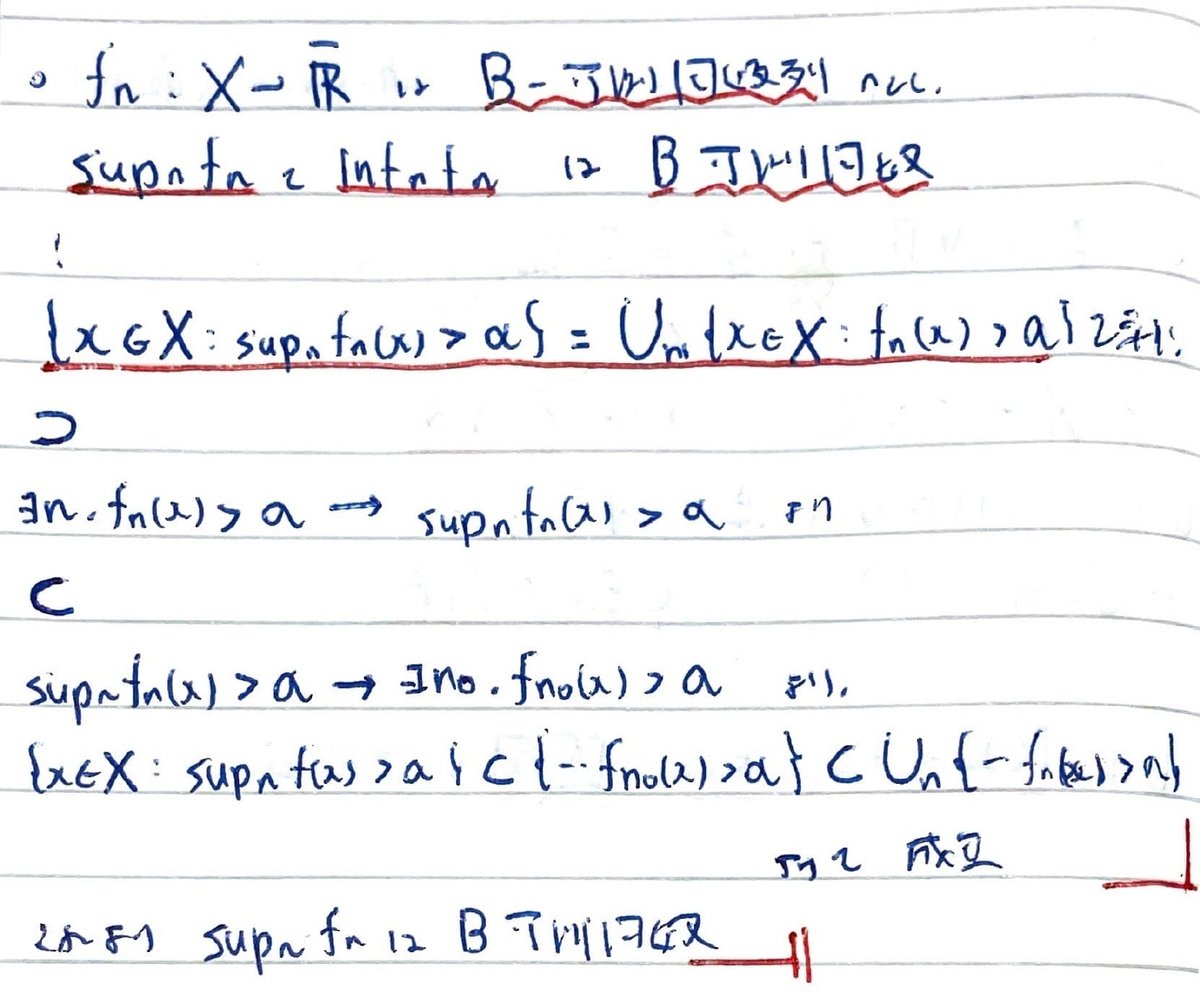 ◦ fn : X → R̅ は B-可測関数列 とし.
supn fn と infn fn は B 可測関数
∵
{x∈X : supn fn(x) > a} = Un {x∈X : fn(x) > a} を示す.
⊃
∃n. fn(x) > a → supn fn(x) > a より
⊂
supn fn(x) > a → ∃n0. fn0(x) > a より.
{x∈X : supn f(x) > a} ⊂ {‥ fn0(x) > a} ⊂ Un {- fn(x) > a}
成立
supn fn は B 可測関数